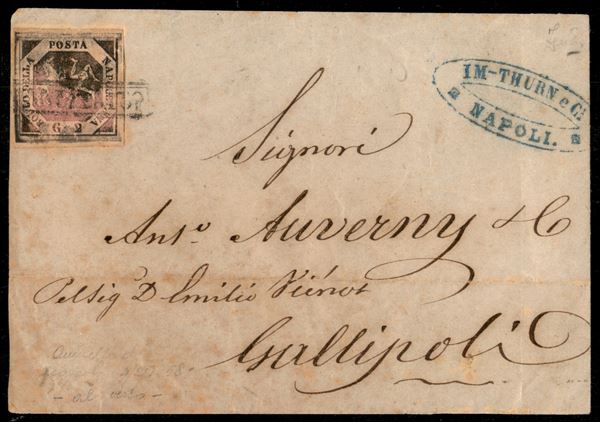 POSTA
NAPOLETANA
BOLLO DELLA
G. 2
IM-THURN e C.
NAPOLI.
Signori
Ant.º Auverny & C
Pel Sig D Emilio Viénot
Gallipoli
- al verso -